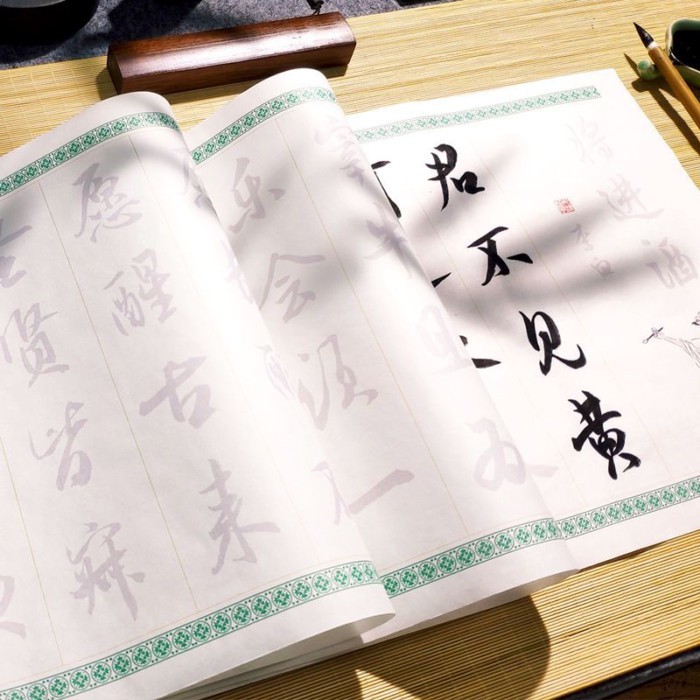 将进酒
李白
君不见黄
宰牛且为
乐会须一
愿醒古来
贤皆寂